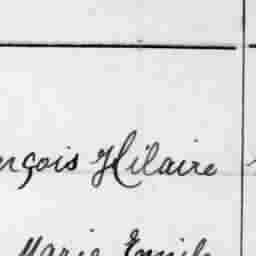 nçois Hilaire
Marie Emile